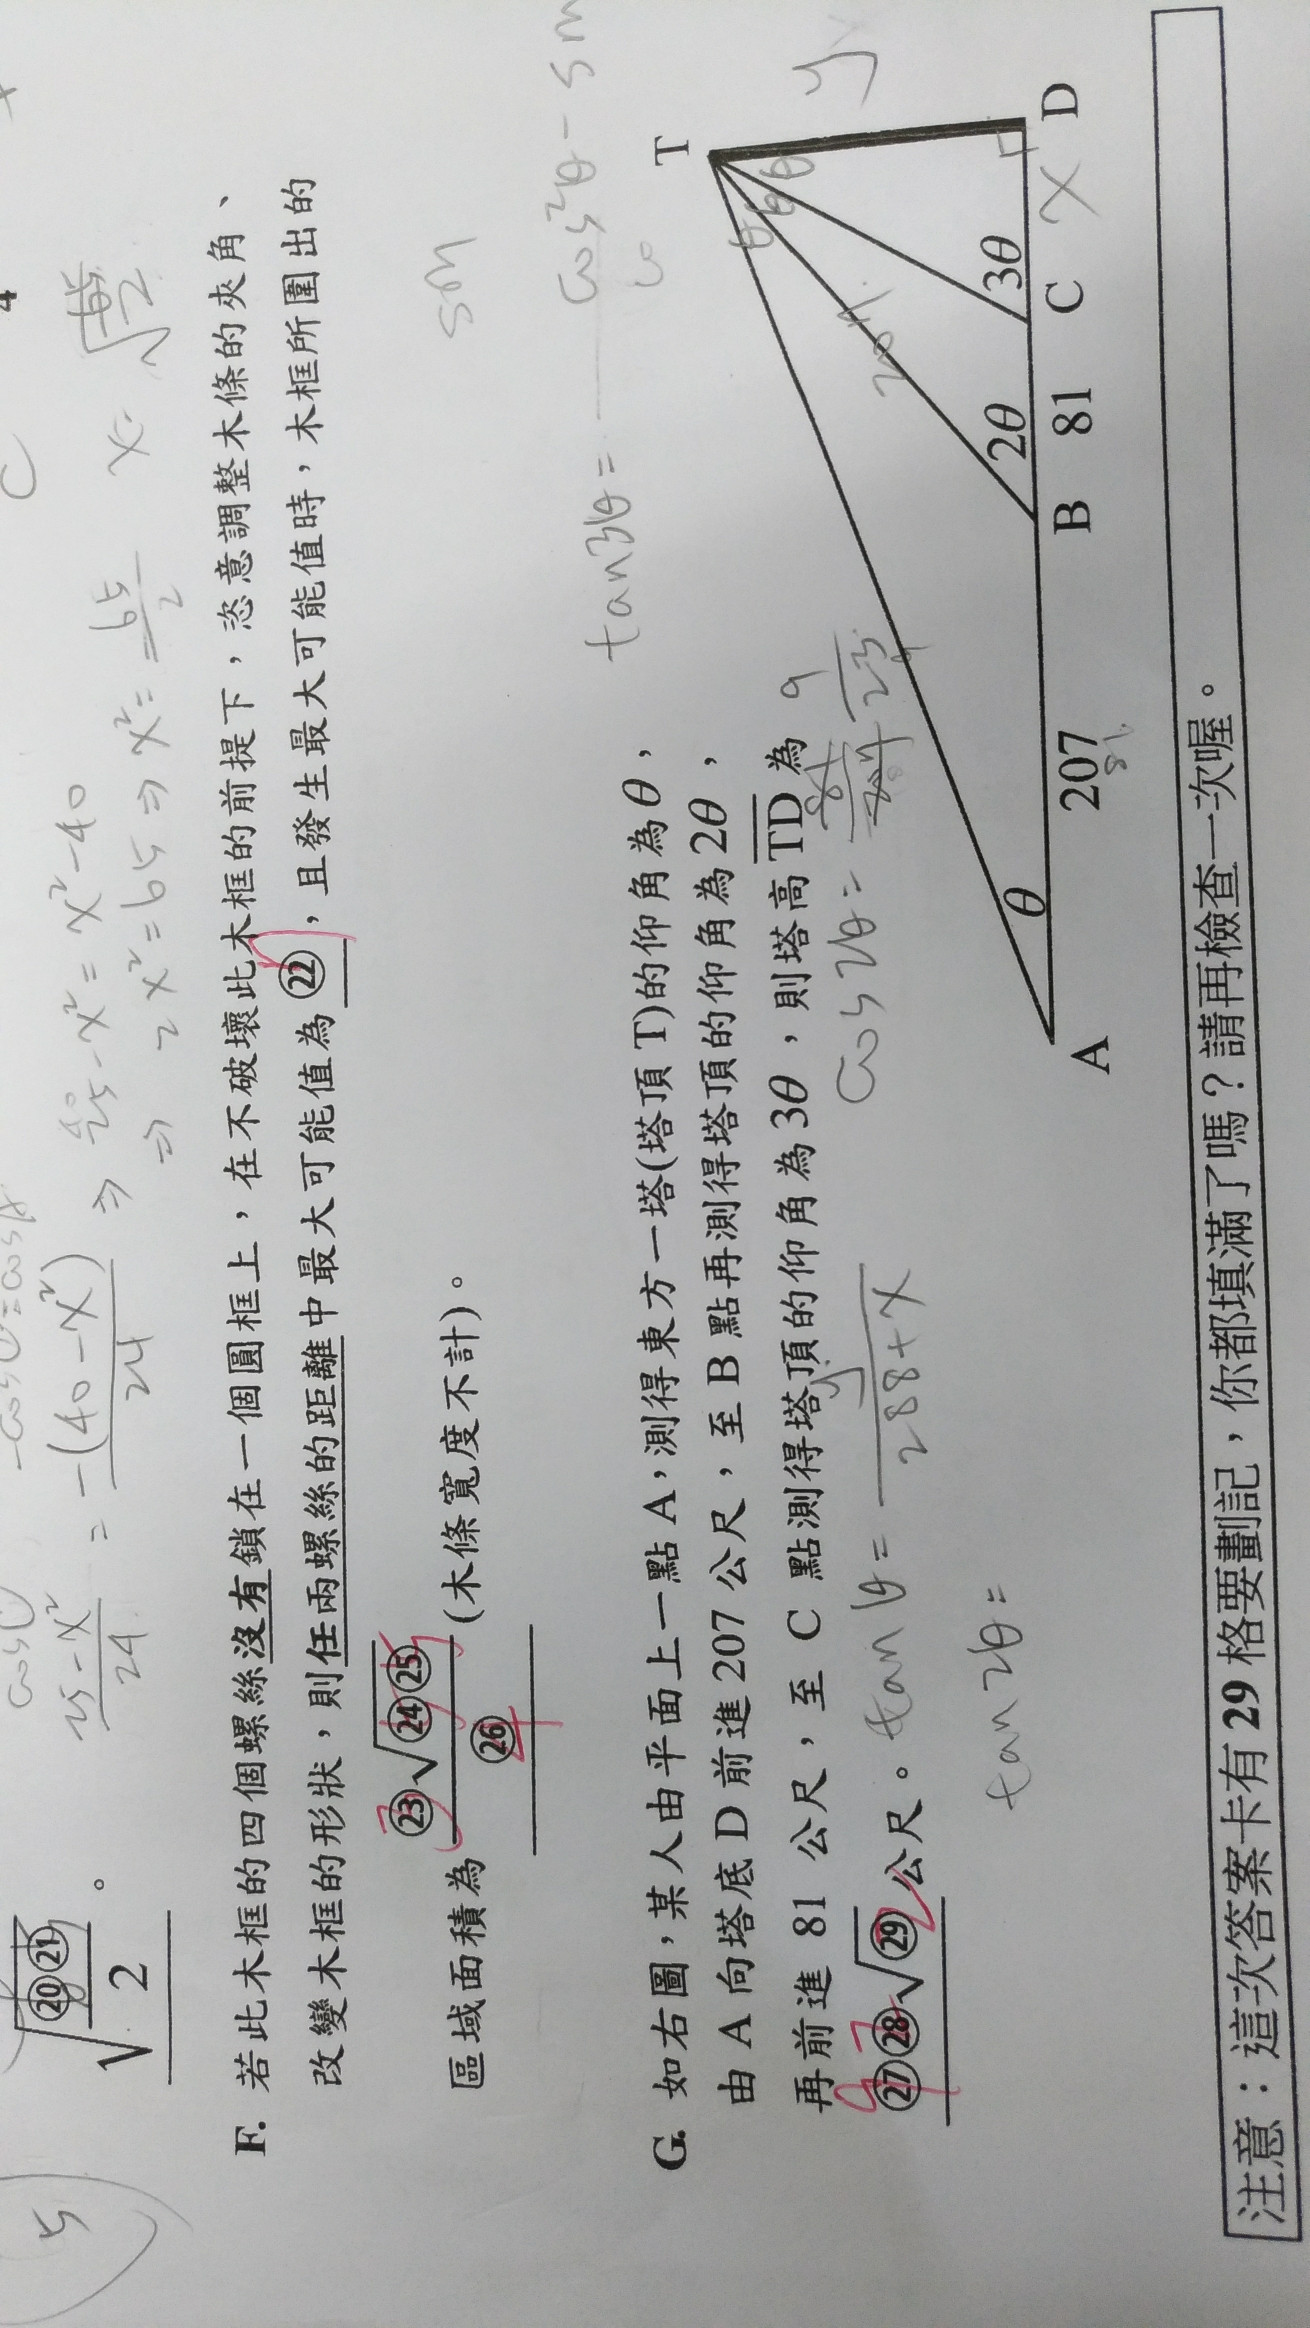 4
C
cosθ
-cosθ=cosA
25-x²/24 = -(40-x²)/24 ⇒ 25-x²=x²-40
⇒ 2x²=65 ⇒ x²=65/2 x=√65/2
5
√⑳㉑/2 。
F. 若此木框的四個螺絲沒有鎖在一個圓框上，在不破壞此木框的前提下，恣意調整木條的夾角、
改變木框的形狀，則任兩螺絲的距離中最大可能值為㉒，且發生最大可能值時，木框所圍出的
7
區域面積為 ㉓√㉔㉕/㉖ (木條寬度不計)。
3
5 5
4
sin
tan3θ=
cos²θ-sin
G. 如右圖，某人由平面上一點 A，測得東方一塔(塔頂 T)的仰角為θ，
由 A 向塔底 D 前進 207 公尺，至 B 點再測得塔頂的仰角為2θ，
再前進 81 公尺，至 C 點測得塔頂的仰角為3θ，則塔高TD為
㉗㉘√㉙公尺。
9 7 2
tanθ= y/288+x
tan2θ=
cos2θ= 9/23
T
θ θ θ
y
207
A θ B 2θ C 3θ D
207 81 x
81
注意：這次答案卡有 29 格要劃記，你都填滿了嗎？請再檢查一次喔。